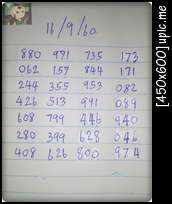 16/9/60
880 971 735 173
062 157 844 171
244 355 953 082
426 513 991 039
608 799 446 940
280 399 628 046
408 626 800 974
[450x600] upic.me